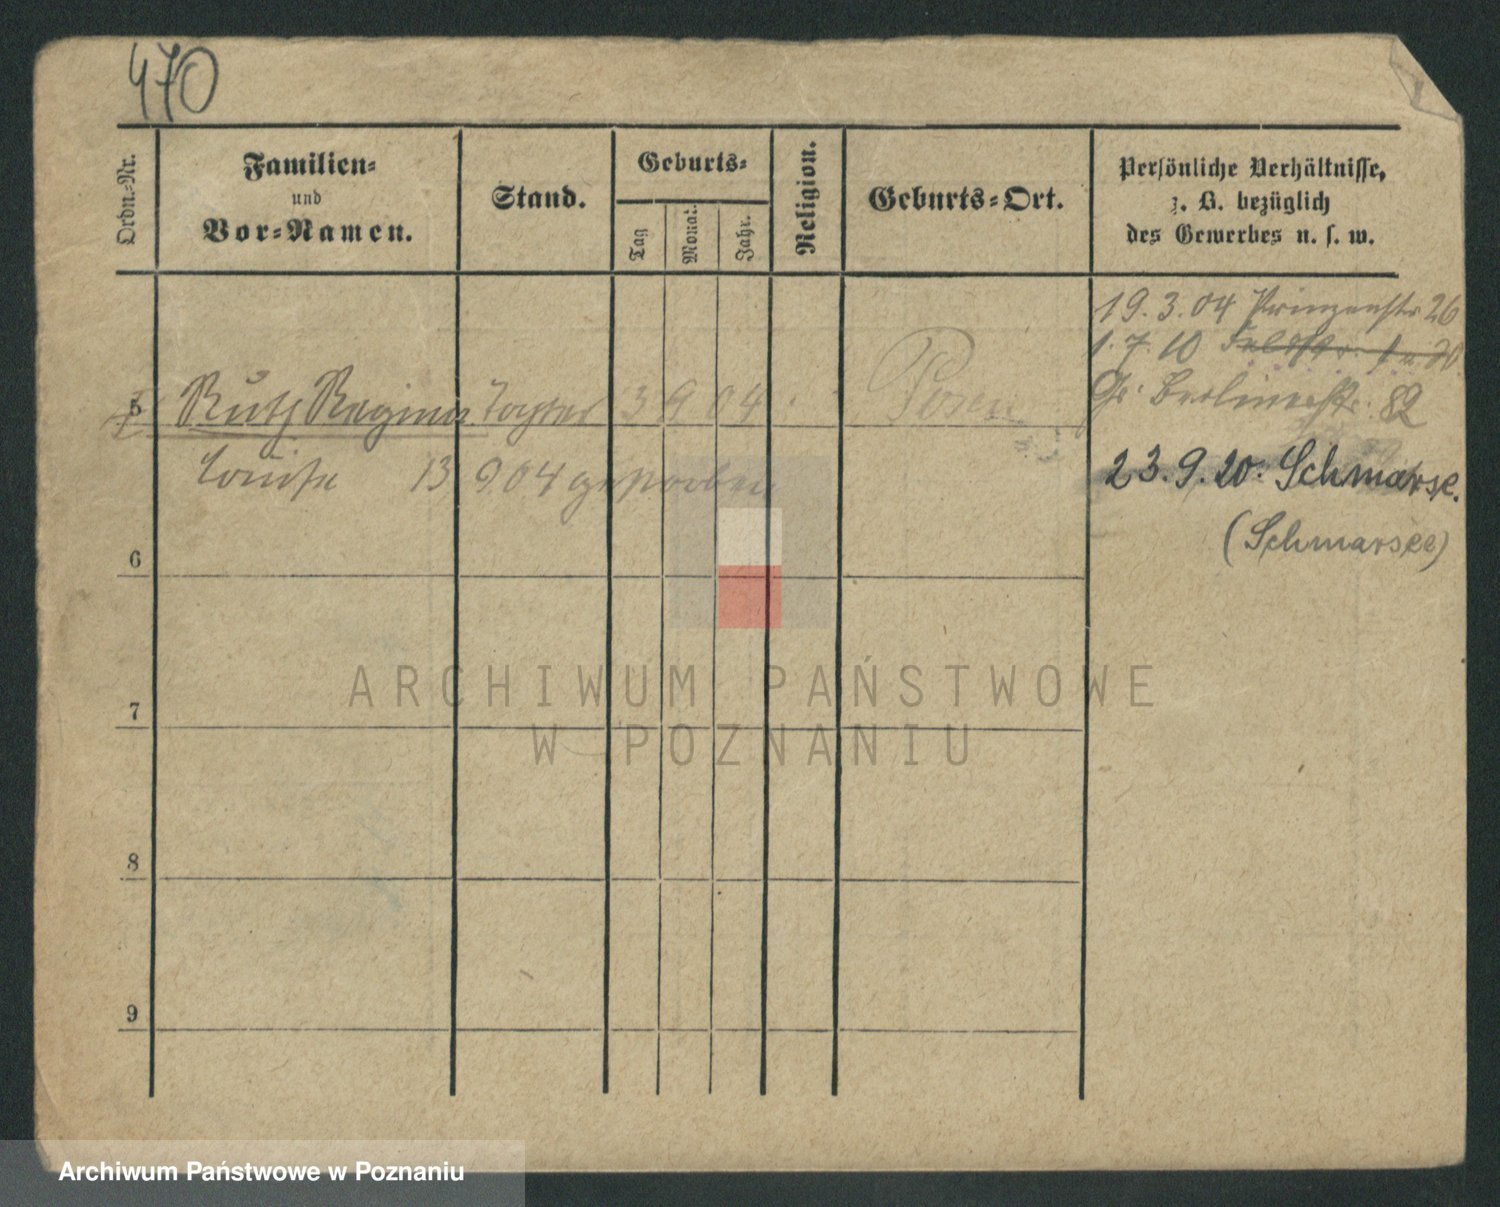 470
Ordn.-Nr.
Familien-
und
Vor-Namen.
Stand.
Geburts-
Tag
Monat.
Jahr.
Religion.
Geburts-Ort.
Persönliche Verhältnisse,
z. B. bezüglich
des Gewerbes u. s. w.
19.3.04 Prinzenstr 26
1.7.10 Feldstr.
Gr. Berlinerstr. 82
5 Ruth Regina Tochter 3 9 04 Posen
Louise 13 9 04 gestorben
23.9.20. Schmarse.
(Schmarsee)
6
7
8
9
ARCHIWUM PAŃSTWOWE
W POZNANIU
Archiwum Państwowe w Poznaniu